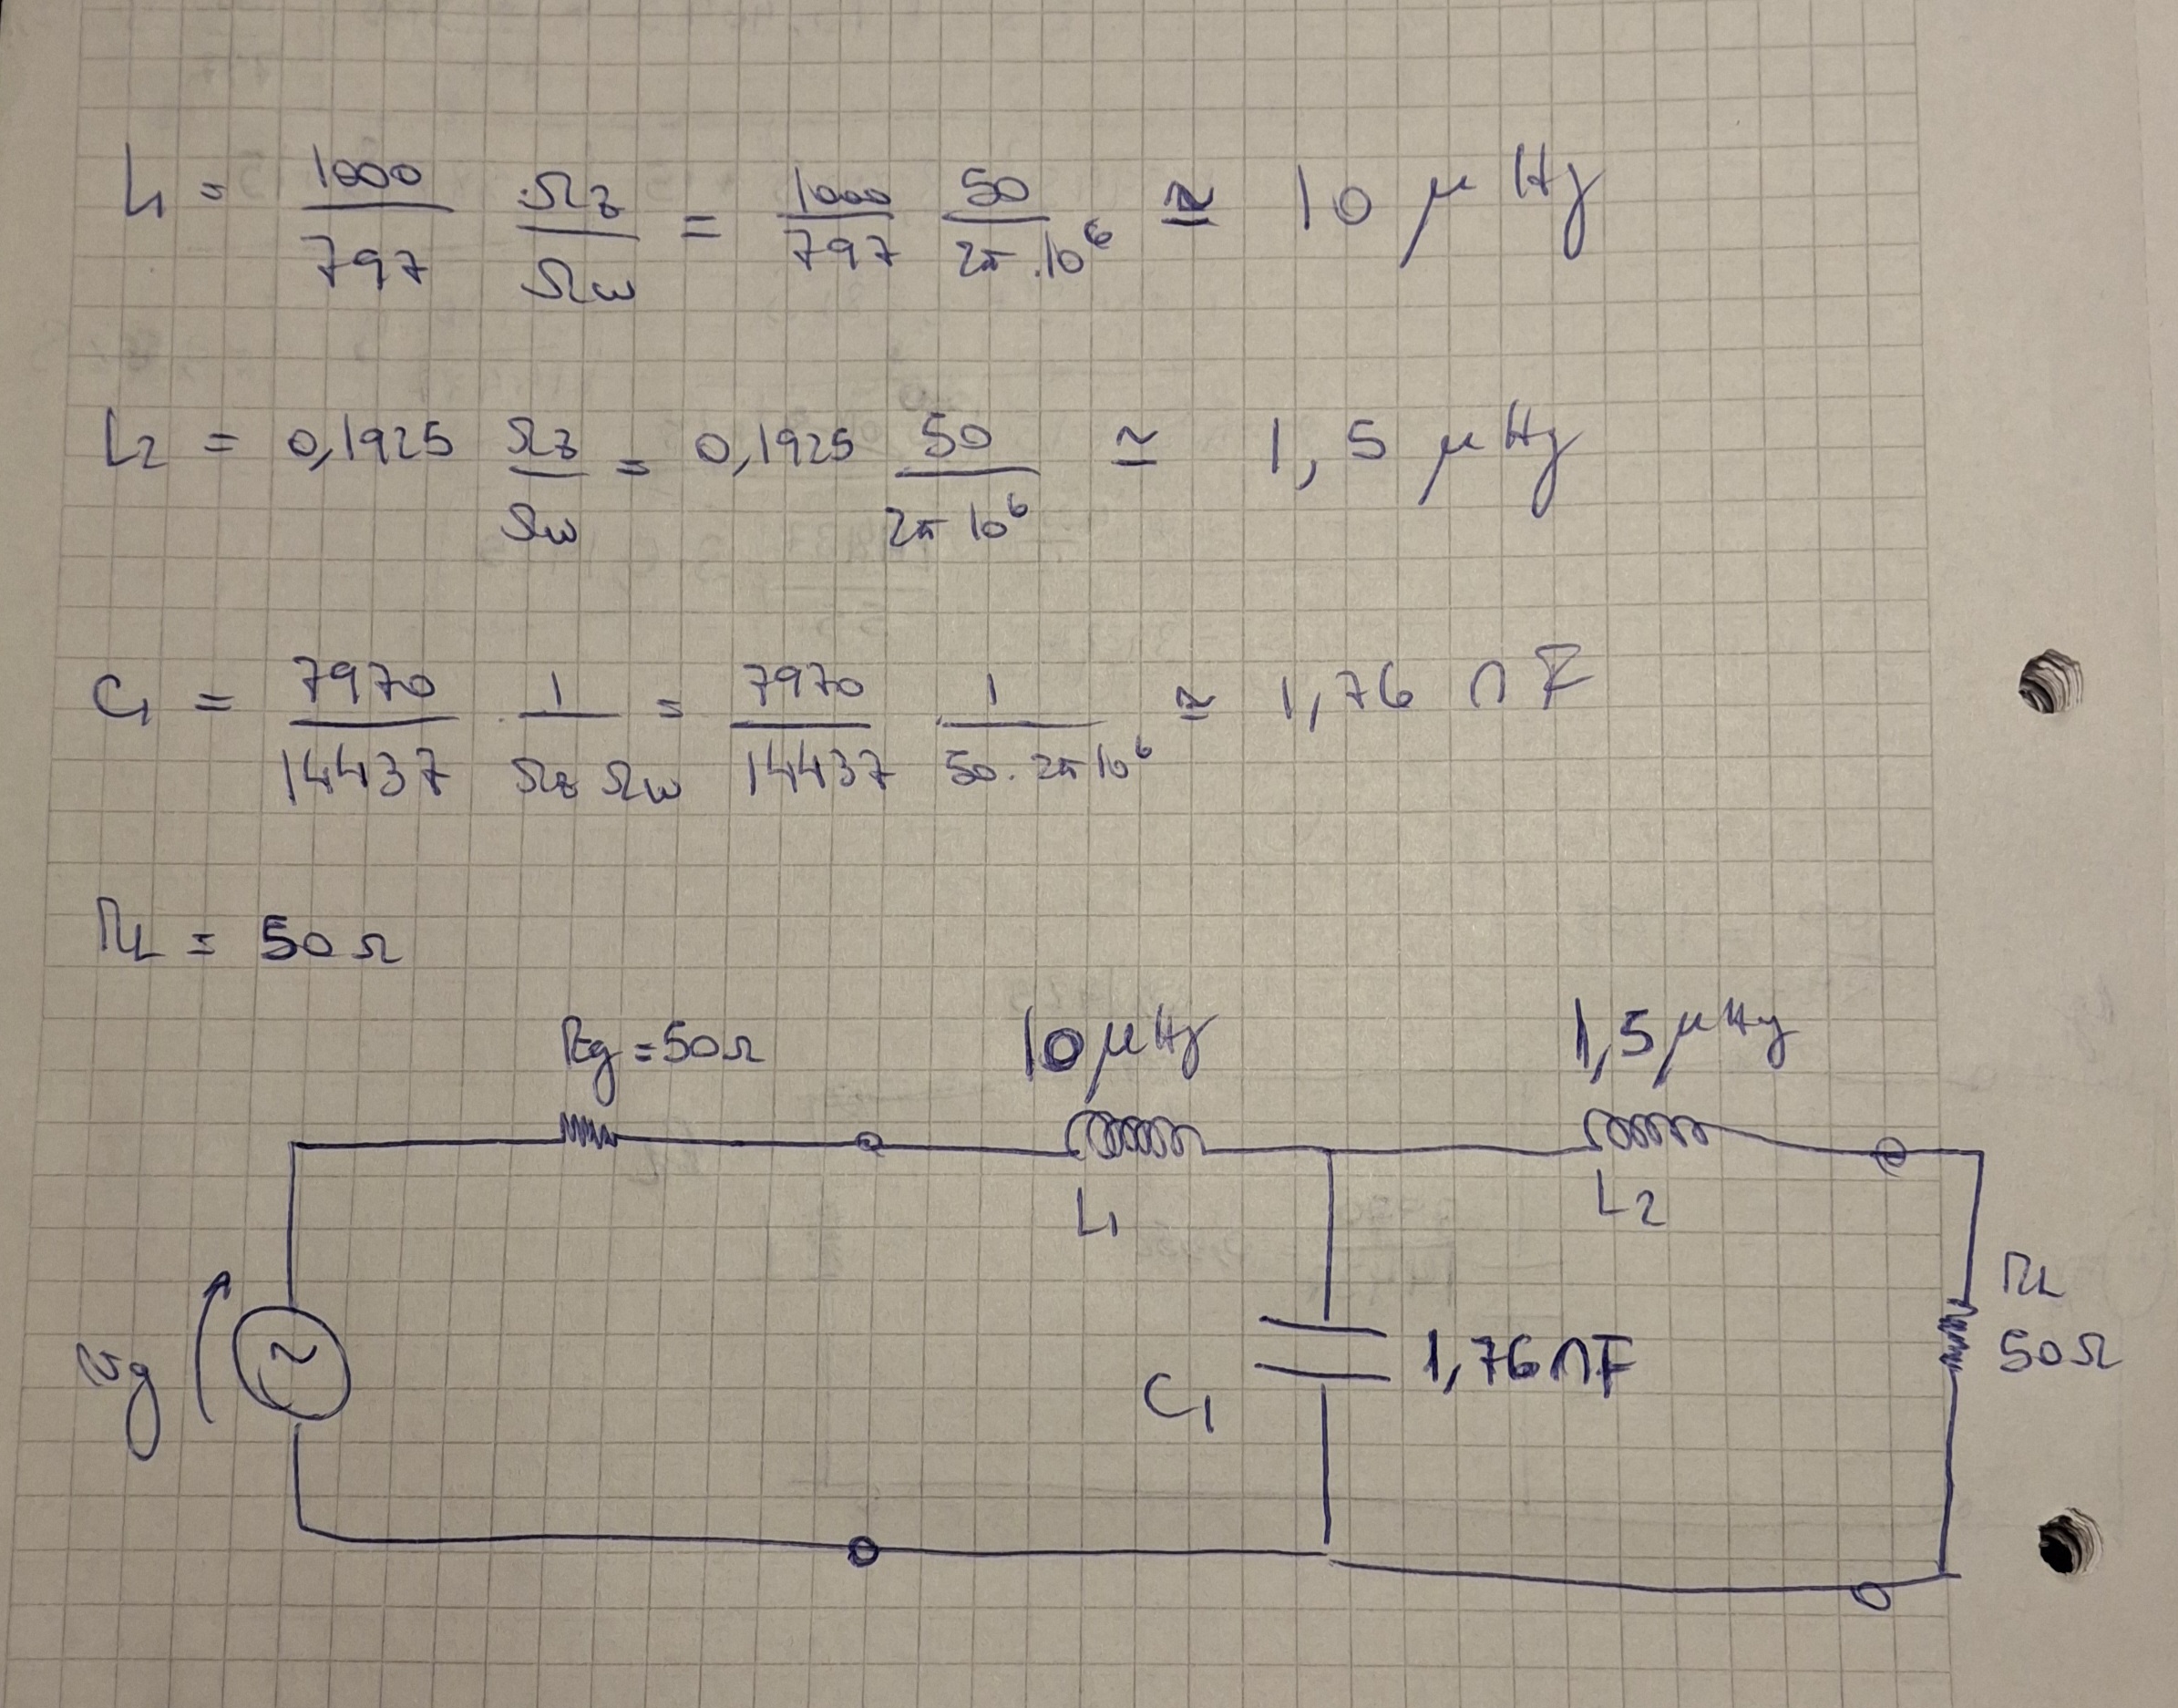 L1 = 1000/797 Ωz/Ωω = 1000/797 50/2π.10^6 ≅ 10 μHy
L2 = 0,1925 Ωz/Ωω = 0,1925 50/2π 10^6 ≅ 1,5 μHy
C1 = 7970/14437 . 1/Ωz Ωω = 7970/14437 1/50.2π10^6 ≅ 1,76 nF
RL = 50Ω
Rg = 50Ω 10 μHy 1,5 μHy
L1 L2
vg ~ C1 1,76nF RL 50Ω